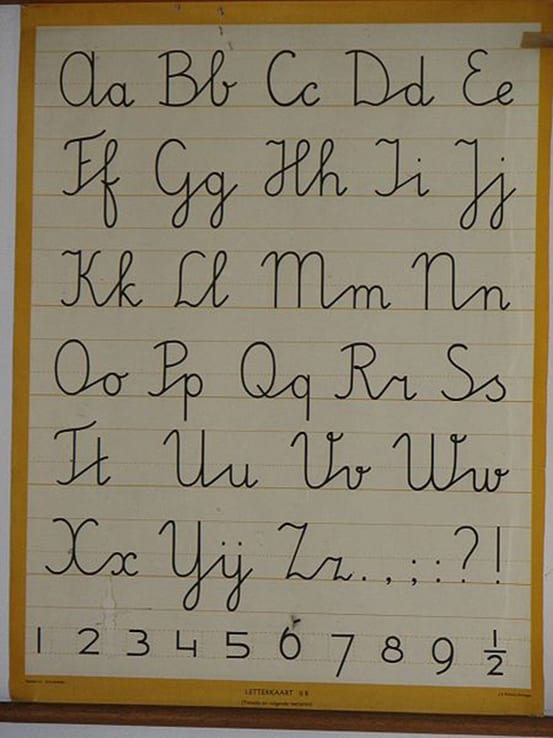 Aa Bb Cc Dd Ee
Ff Gg Hh Ii Jj
Kk Ll Mm Nn
Oo Pp Qq Rr Ss
Tt Uu Vv Ww
Xx IJij Zz . , ; : ? !
1 2 3 4 5 6 7 8 9 ½
LETTERKAART
(Tweede en volgende leerjaren)